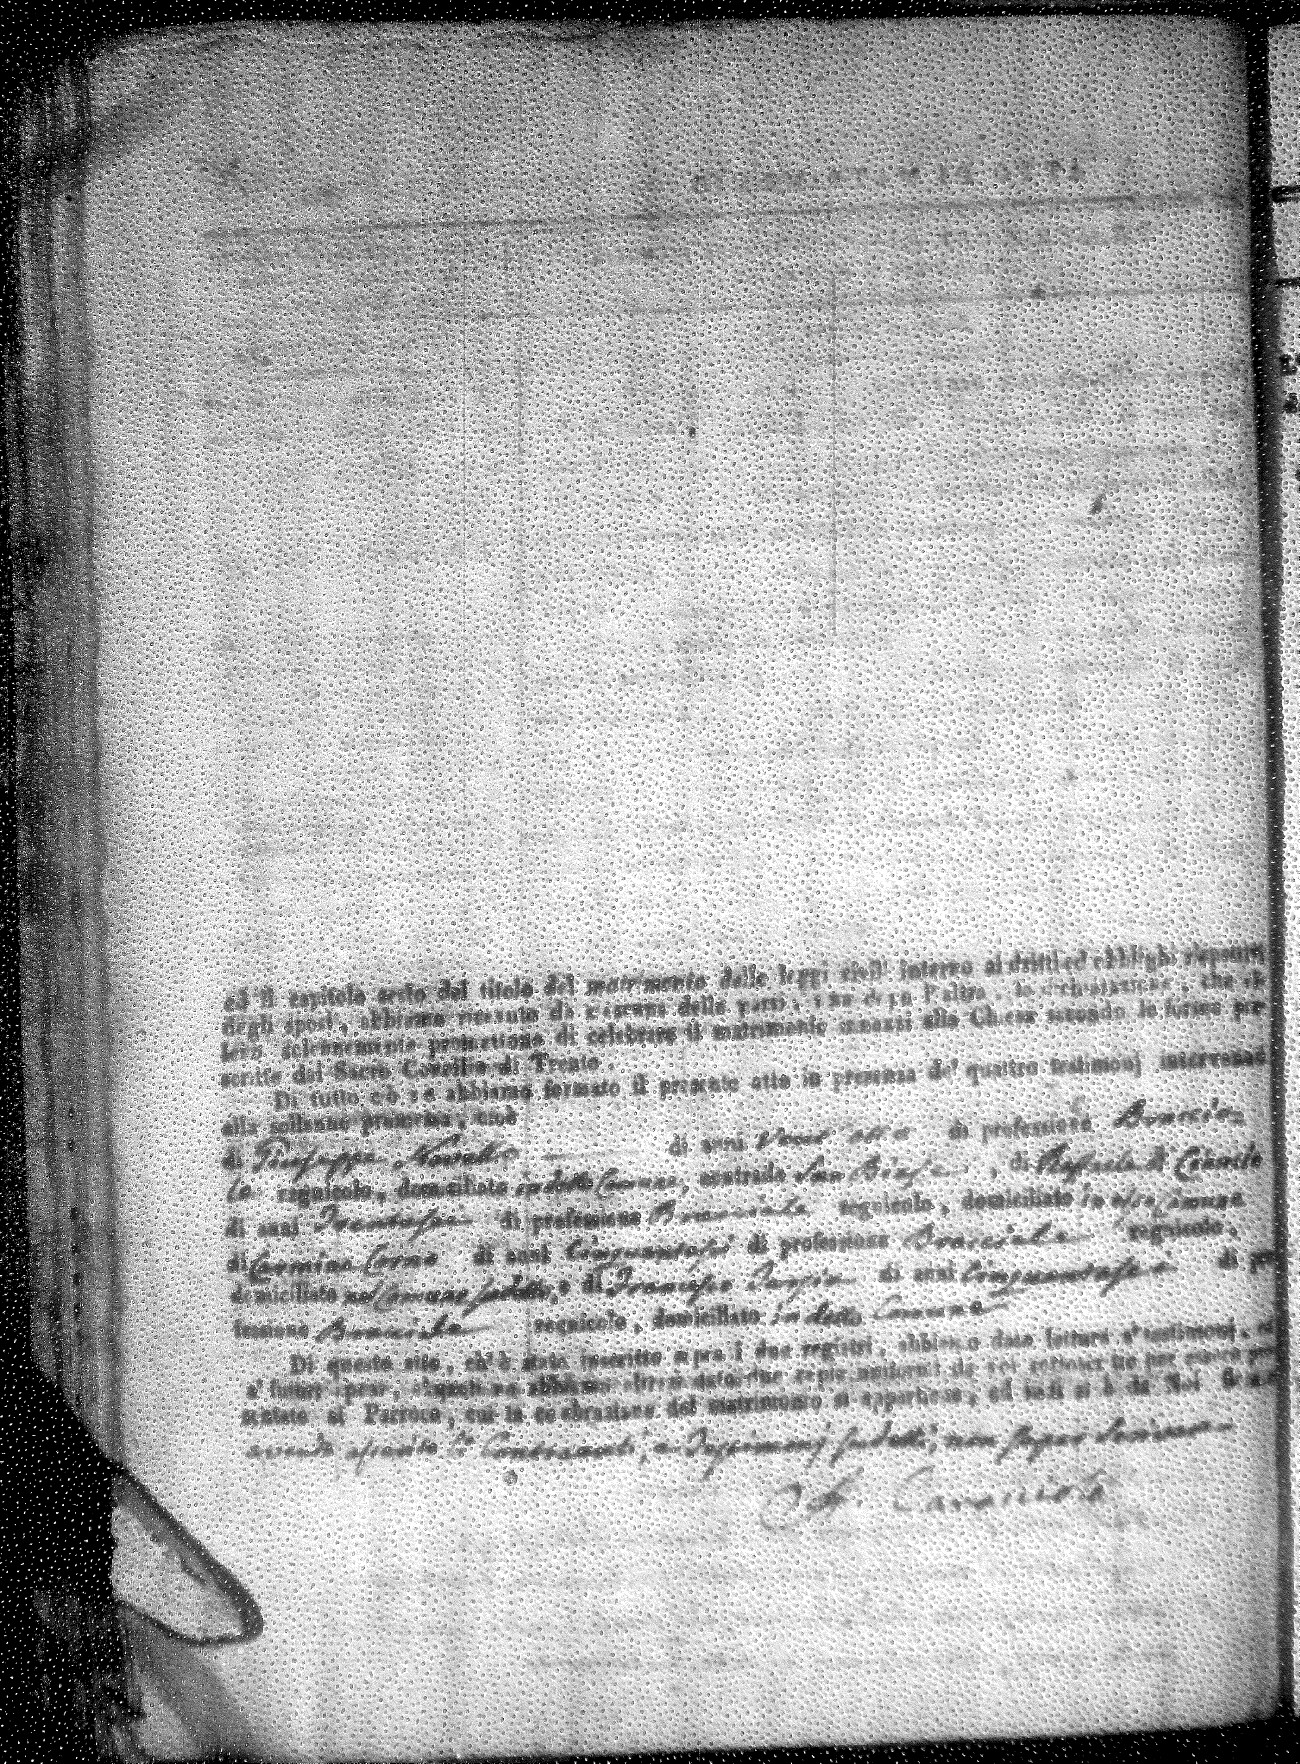 ed il capitolo sesto del titolo del matrimonio delle leggi civili intorno ai dritti ed obblighi rispettivi
degli sposi, abbiamo ricevuto da ciascuna delle parti, una dopo l'altra, la dichiarazione, che el-
leno solennemente promettono di celebrare il matrimonio innanzi alla Chiesa secondo le forme pre-
scritte dal Sacro Concilio di Trento.
Di tutto ciò ne abbiamo formato il presente atto in presenza de' quattro testimonj intervenuti
alla sollenne promessa, cioè
di Giuseppe di anni di professione Braccia
le regnicolo, domiciliato in detto Comune, contrada San Biase, di Rafaele
di anni Trentasei di professione Bracciale regnicolo, domiciliato in
di Carmine di anni Cinquantasei di professione Bracciale regnicolo,
domiciliato nel Comune sudetto, e di Francesco di anni Cinquantasei di pro
fessione Bracciale regnicolo, domiciliato in detto Comune
Di questo atto, ch'è stato inscritto sopra i due registri, abbiamo dato lettura a' testimonj, ed
a' futuri sposi, ai quali ne abbiamo altresì dato due copie uniformi da noi sottoscritte per essere pre
sentate al Parroco, cui la celebrazione del matrimonio si appartiene, ed indi si è da Noi firmato
avendo asserito li Contraenti, e Testimonj sudetti, non saper scrivere